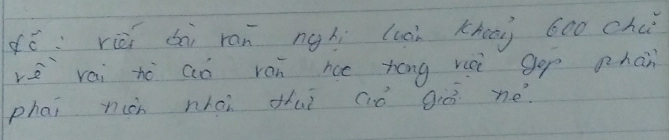 đề: viết bài văn nghị luận khoảng 600 chữ
về vai trò của văn học trong việc góp phần
phát triển nhận thức của giới trẻ.